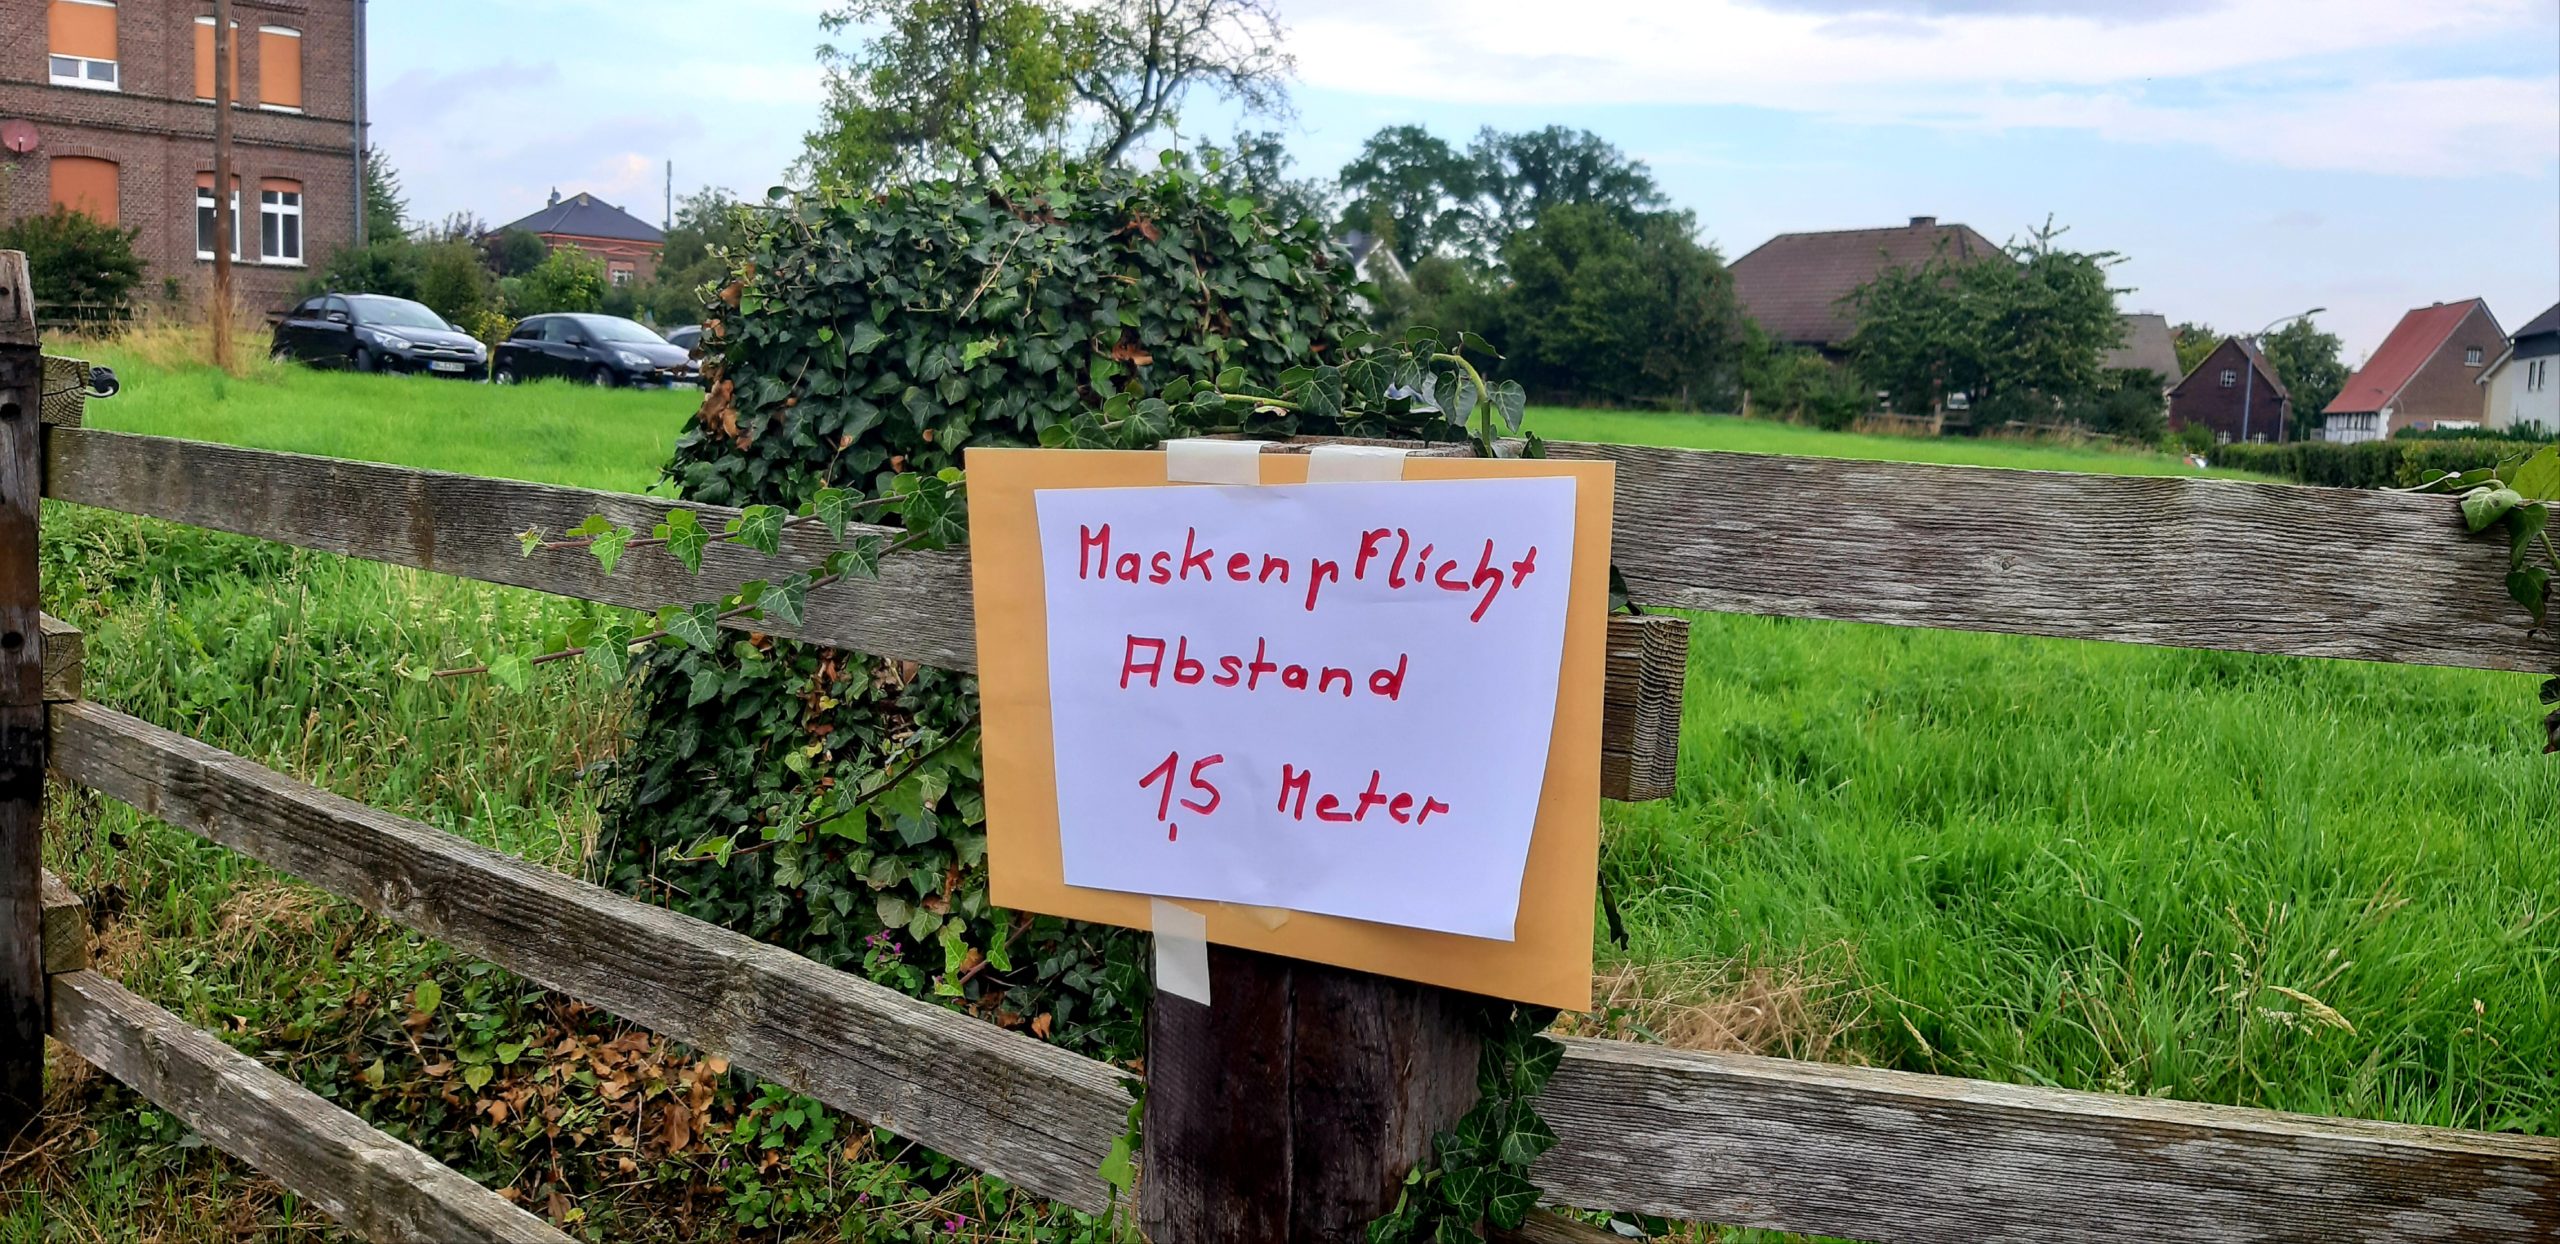 Maskenpflicht
Abstand
1,5 Meter